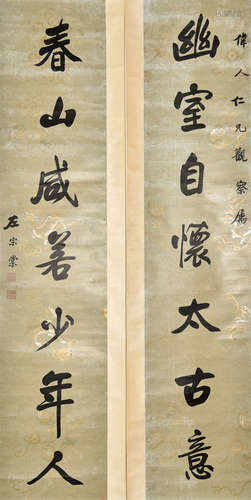 偉人仁兄觀察屬
幽室自懷太古意
春山咸若少年人
左宗棠